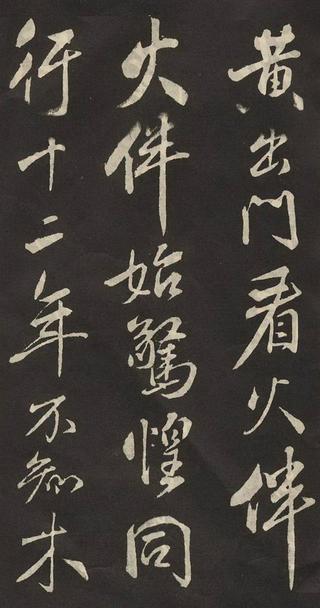 黄出門看火伴
火伴始驚惶同
行十二年不知木